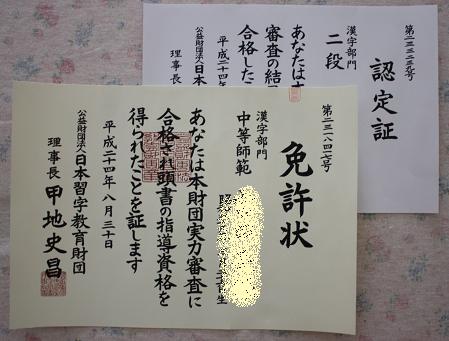 認定証
漢字部門
二段
あなたは
審査の結
合格した
平成二十四年
公益財団法人日本
理事長
免許状
漢字部門
中等師範
生
あなたは本財団実力審査に
合格され頭書の指導資格を
得られたことを証します
平成二十四年八月三十日
公益財団法人日本習字教育財団
理事長 甲地史昌